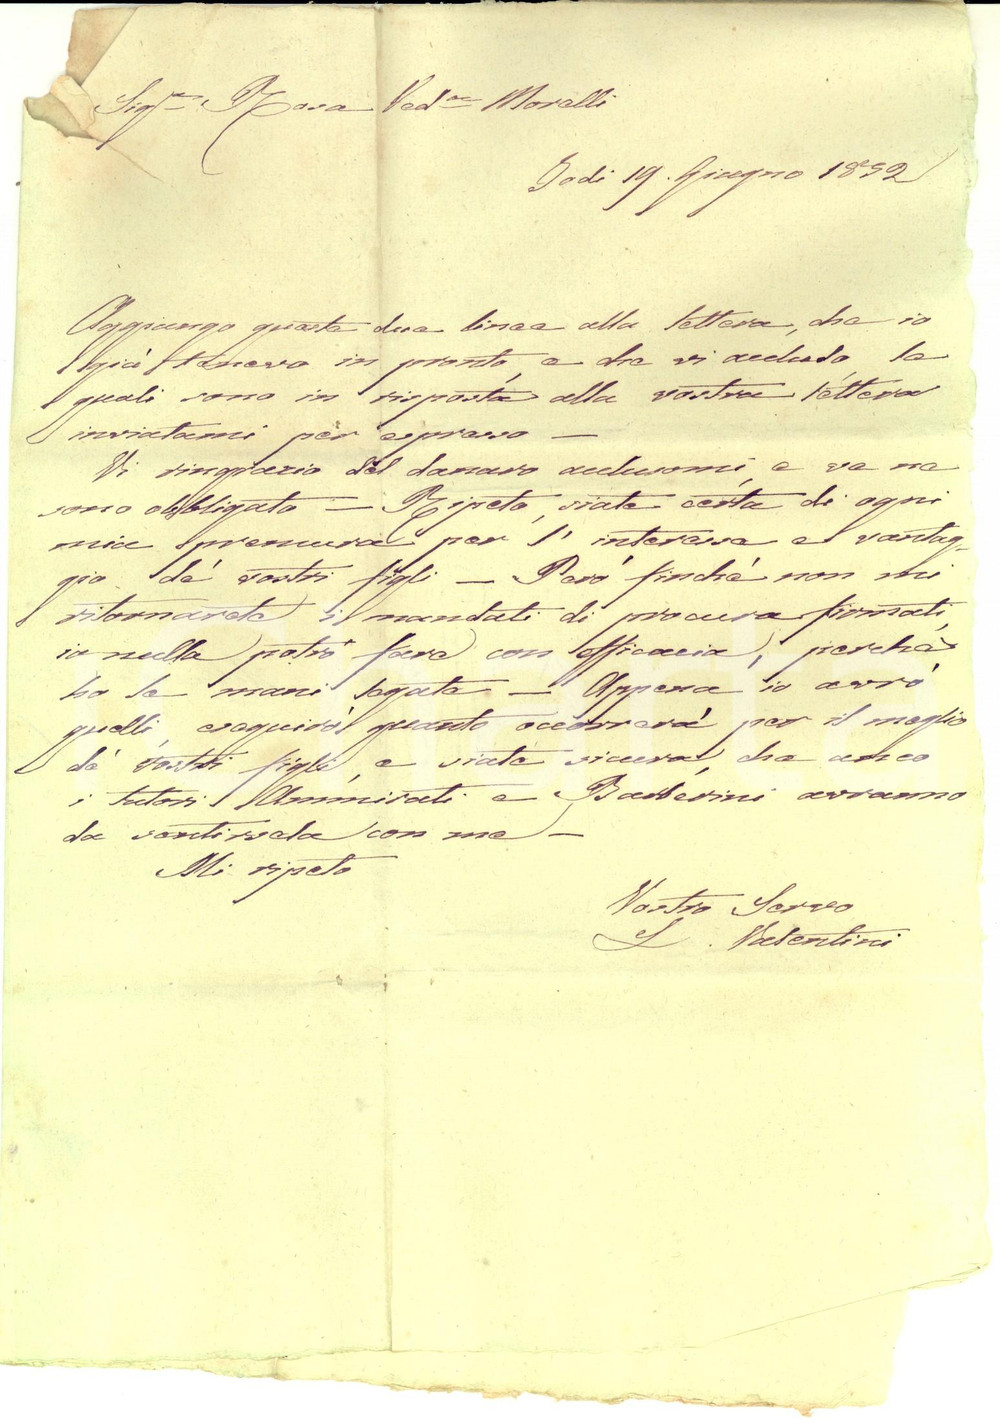 Sig.ra Rosa Ved.va Morelli
Todi 19. Giugno 1852
Aggiungo queste due linee alla lettera, che io
già teneva in pronto, e che vi accludo, le
quali sono in risposta alla vostra lettera
inviatami per espresso —
Vi ringrazio del danaro acclusomi, e ve ne
sono obbligato — Ripeto, siate certa di ogni
mia premura per l' interesse e vantag-
gio de' vostri figli — Però finchè non mi
ritornarete i mandati di procura firmati,
io nulla potrò fare con efficacia, perchè
ho le mani legate — Appena io avrò
quelli, eseguirò quanto occorrerà per il meglio
de' vostri figli, e siate sicura, che anco
i tutori Ammirati e Barberini avranno
da sentirsela con me —
Mi ripeto
Vostro Servo
L. Valentini